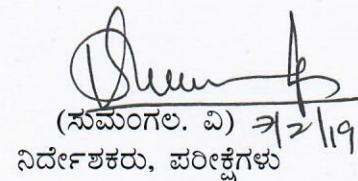 (ಸುಮಂಗಲ. ವಿ) 7/2/19
ನಿರ್ದೇಶಕರು, ಪರೀಕ್ಷೆಗಳು